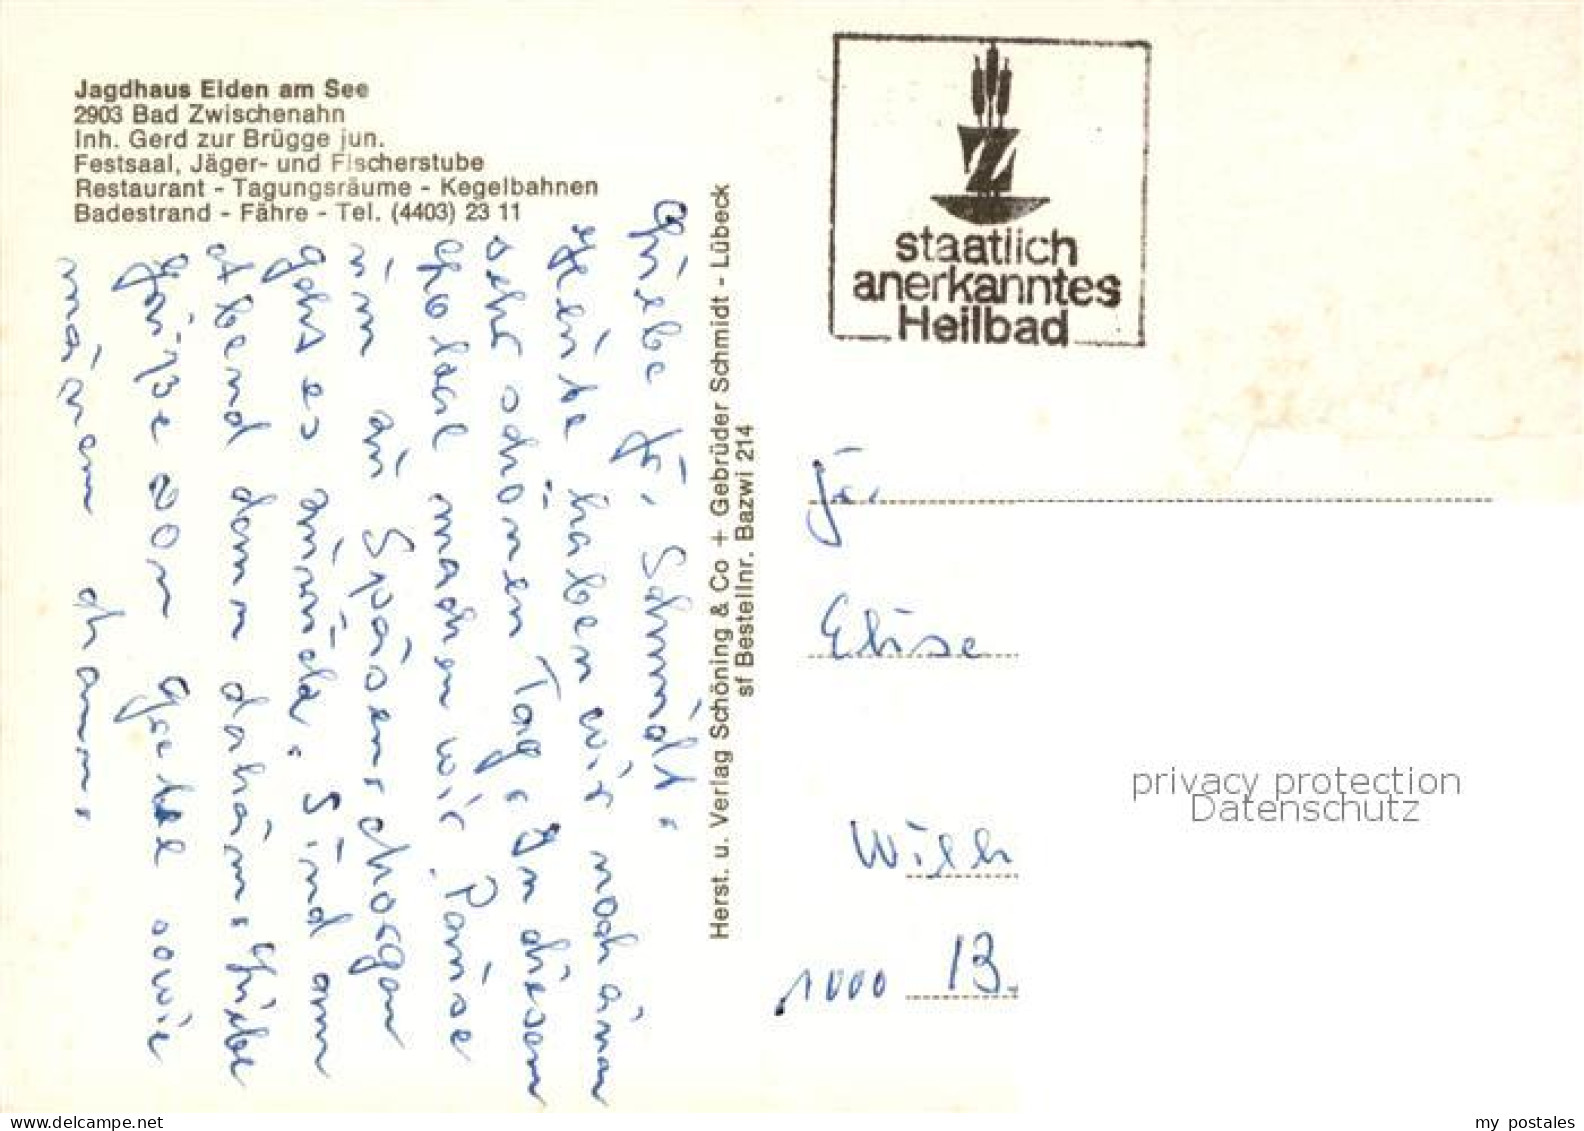 Jagdhaus Eiden am See
2903 Bad Zwischenahn
Inh. Gerd zur Brügge jun.
Festsaal, Jäger- und Fischerstube
Restaurant - Tagungsräume - Kegelbahnen
Badestrand - Fähre - Tel. (4403) 23 11
Liebe Fr. Schmidt.
Heute haben wir noch einen
sehr schönen Tag. In diesem
Hotel machen wir Pause
um zu Speisen. Morgen
gehts zurück. Sind am
Abend dann daheim. Liebe
Grüße von Gretel sowie
meinem Mann.
Herst. u. Verlag Schöning & Co + Gebrüder Schmidt - Lübeck
sf Bestellnr. Bazwi 214
staatlich
anerkanntes
Heilbad
Fr.
Elise
1000
13.
privacy protection
Datenschutz
www.delcampe.net
my postales